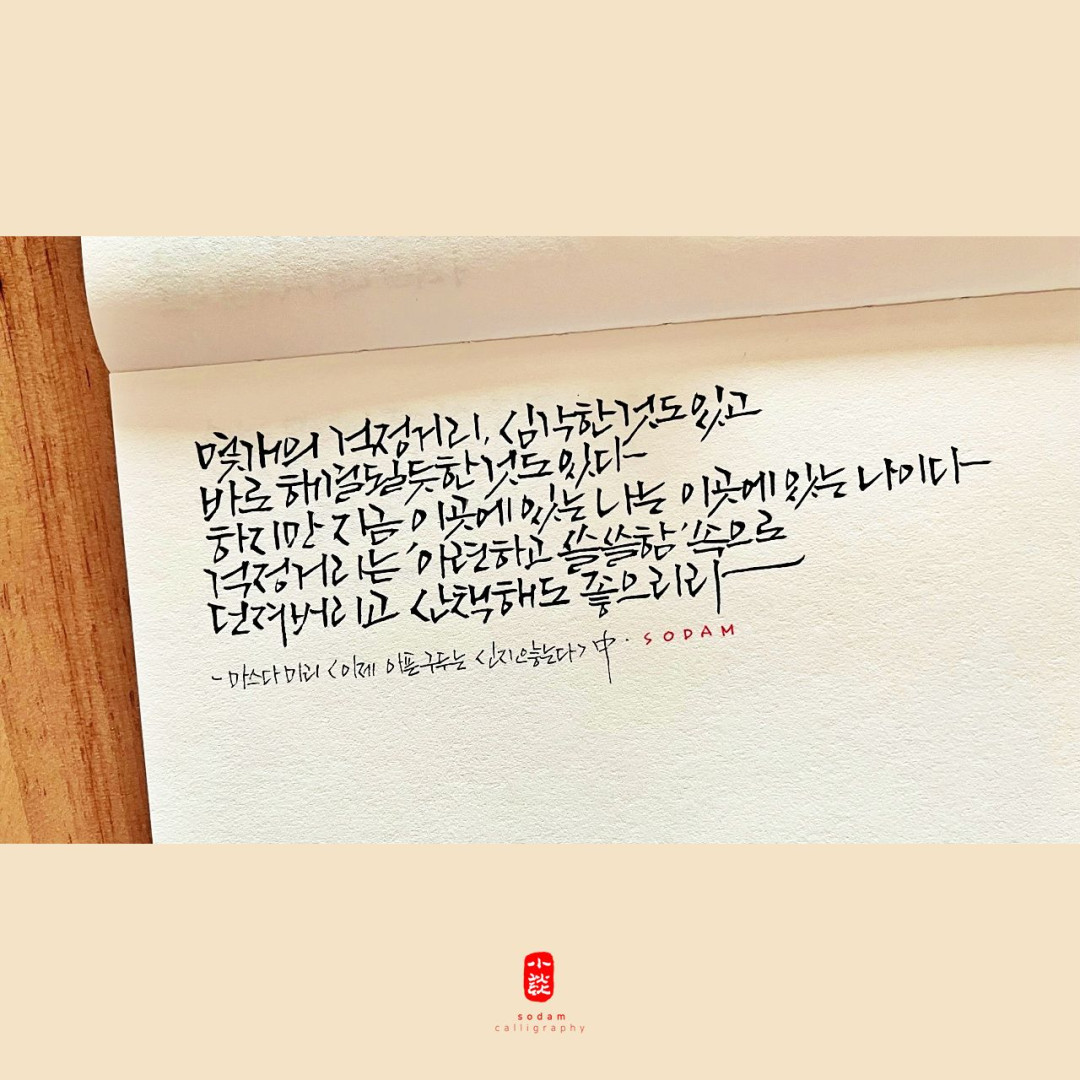 몇개의 걱정거리, 심각한것도있고
바로 해결될듯한것도있다
하지만 지금 이곳에있는 나는 이곳에 있는 나이다
걱정거리는 '아련하고 쓸쓸함' 속으로
던져버리고 산책해도 좋으리라
- 마스다미리 <이제 아픈구두는 신지않는다> 中. SODAM
小談
sodam
calligraphy